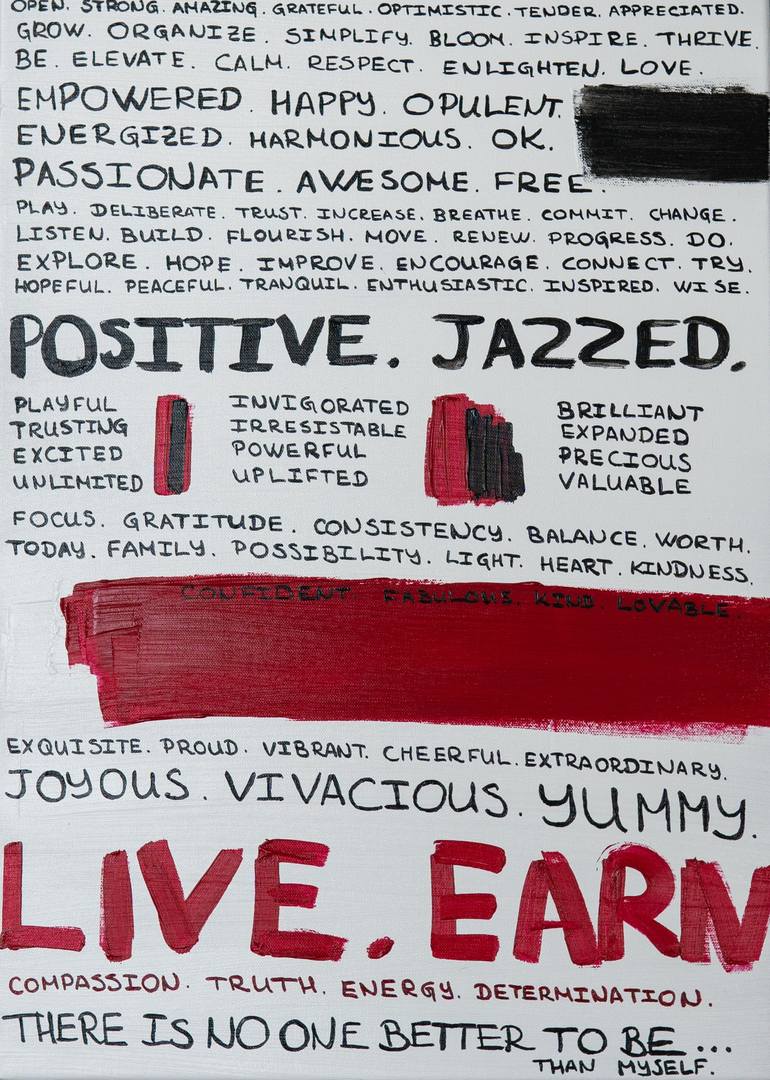 OPEN. STRONG. AMAZING. GRATEFUL. OPTIMISTIC. TENDER. APPRECIATED.
GROW. ORGANIZE. SIMPLIFY. BLOOM. INSPIRE. THRIVE.
BE. ELEVATE. CALM. RESPECT. ENLIGHTEN. LOVE.
EMPOWERED. HAPPY. OPULENT.
ENERGIZED. HARMONIOUS. OK.
PASSIONATE. AWESOME. FREE.
PLAY. DELIBERATE. TRUST. INCREASE. BREATHE. COMMIT. CHANGE.
LISTEN. BUILD. FLOURISH. MOVE. RENEW. PROGRESS. DO.
EXPLORE. HOPE. IMPROVE. ENCOURAGE. CONNECT. TRY.
HOPEFUL. PEACEFUL. TRANQUIL. ENTHUSIASTIC. INSPIRED. WISE.
POSITIVE. JAZZED.
PLAYFUL
TRUSTING
EXCITED
UNLIMITED
INVIGORATED
IRRESISTABLE
POWERFUL
UPLIFTED
BRILLIANT
EXPANDED
PRECIOUS
VALUABLE
FOCUS. GRATITUDE. CONSISTENCY. BALANCE. WORTH.
TODAY. FAMILY. POSSIBILITY. LIGHT. HEART. KINDNESS.
CONFIDENT FABULOUS. KIND. LOVABLE.
EXQUISITE. PROUD. VIBRANT. CHEERFUL. EXTRAORDINARY.
JOYOUS. VIVACIOUS. YUMMY.
LIVE. EARN
COMPASSION. TRUTH. ENERGY. DETERMINATION.
THERE IS NO ONE BETTER TO BE...
THAN MYSELF.